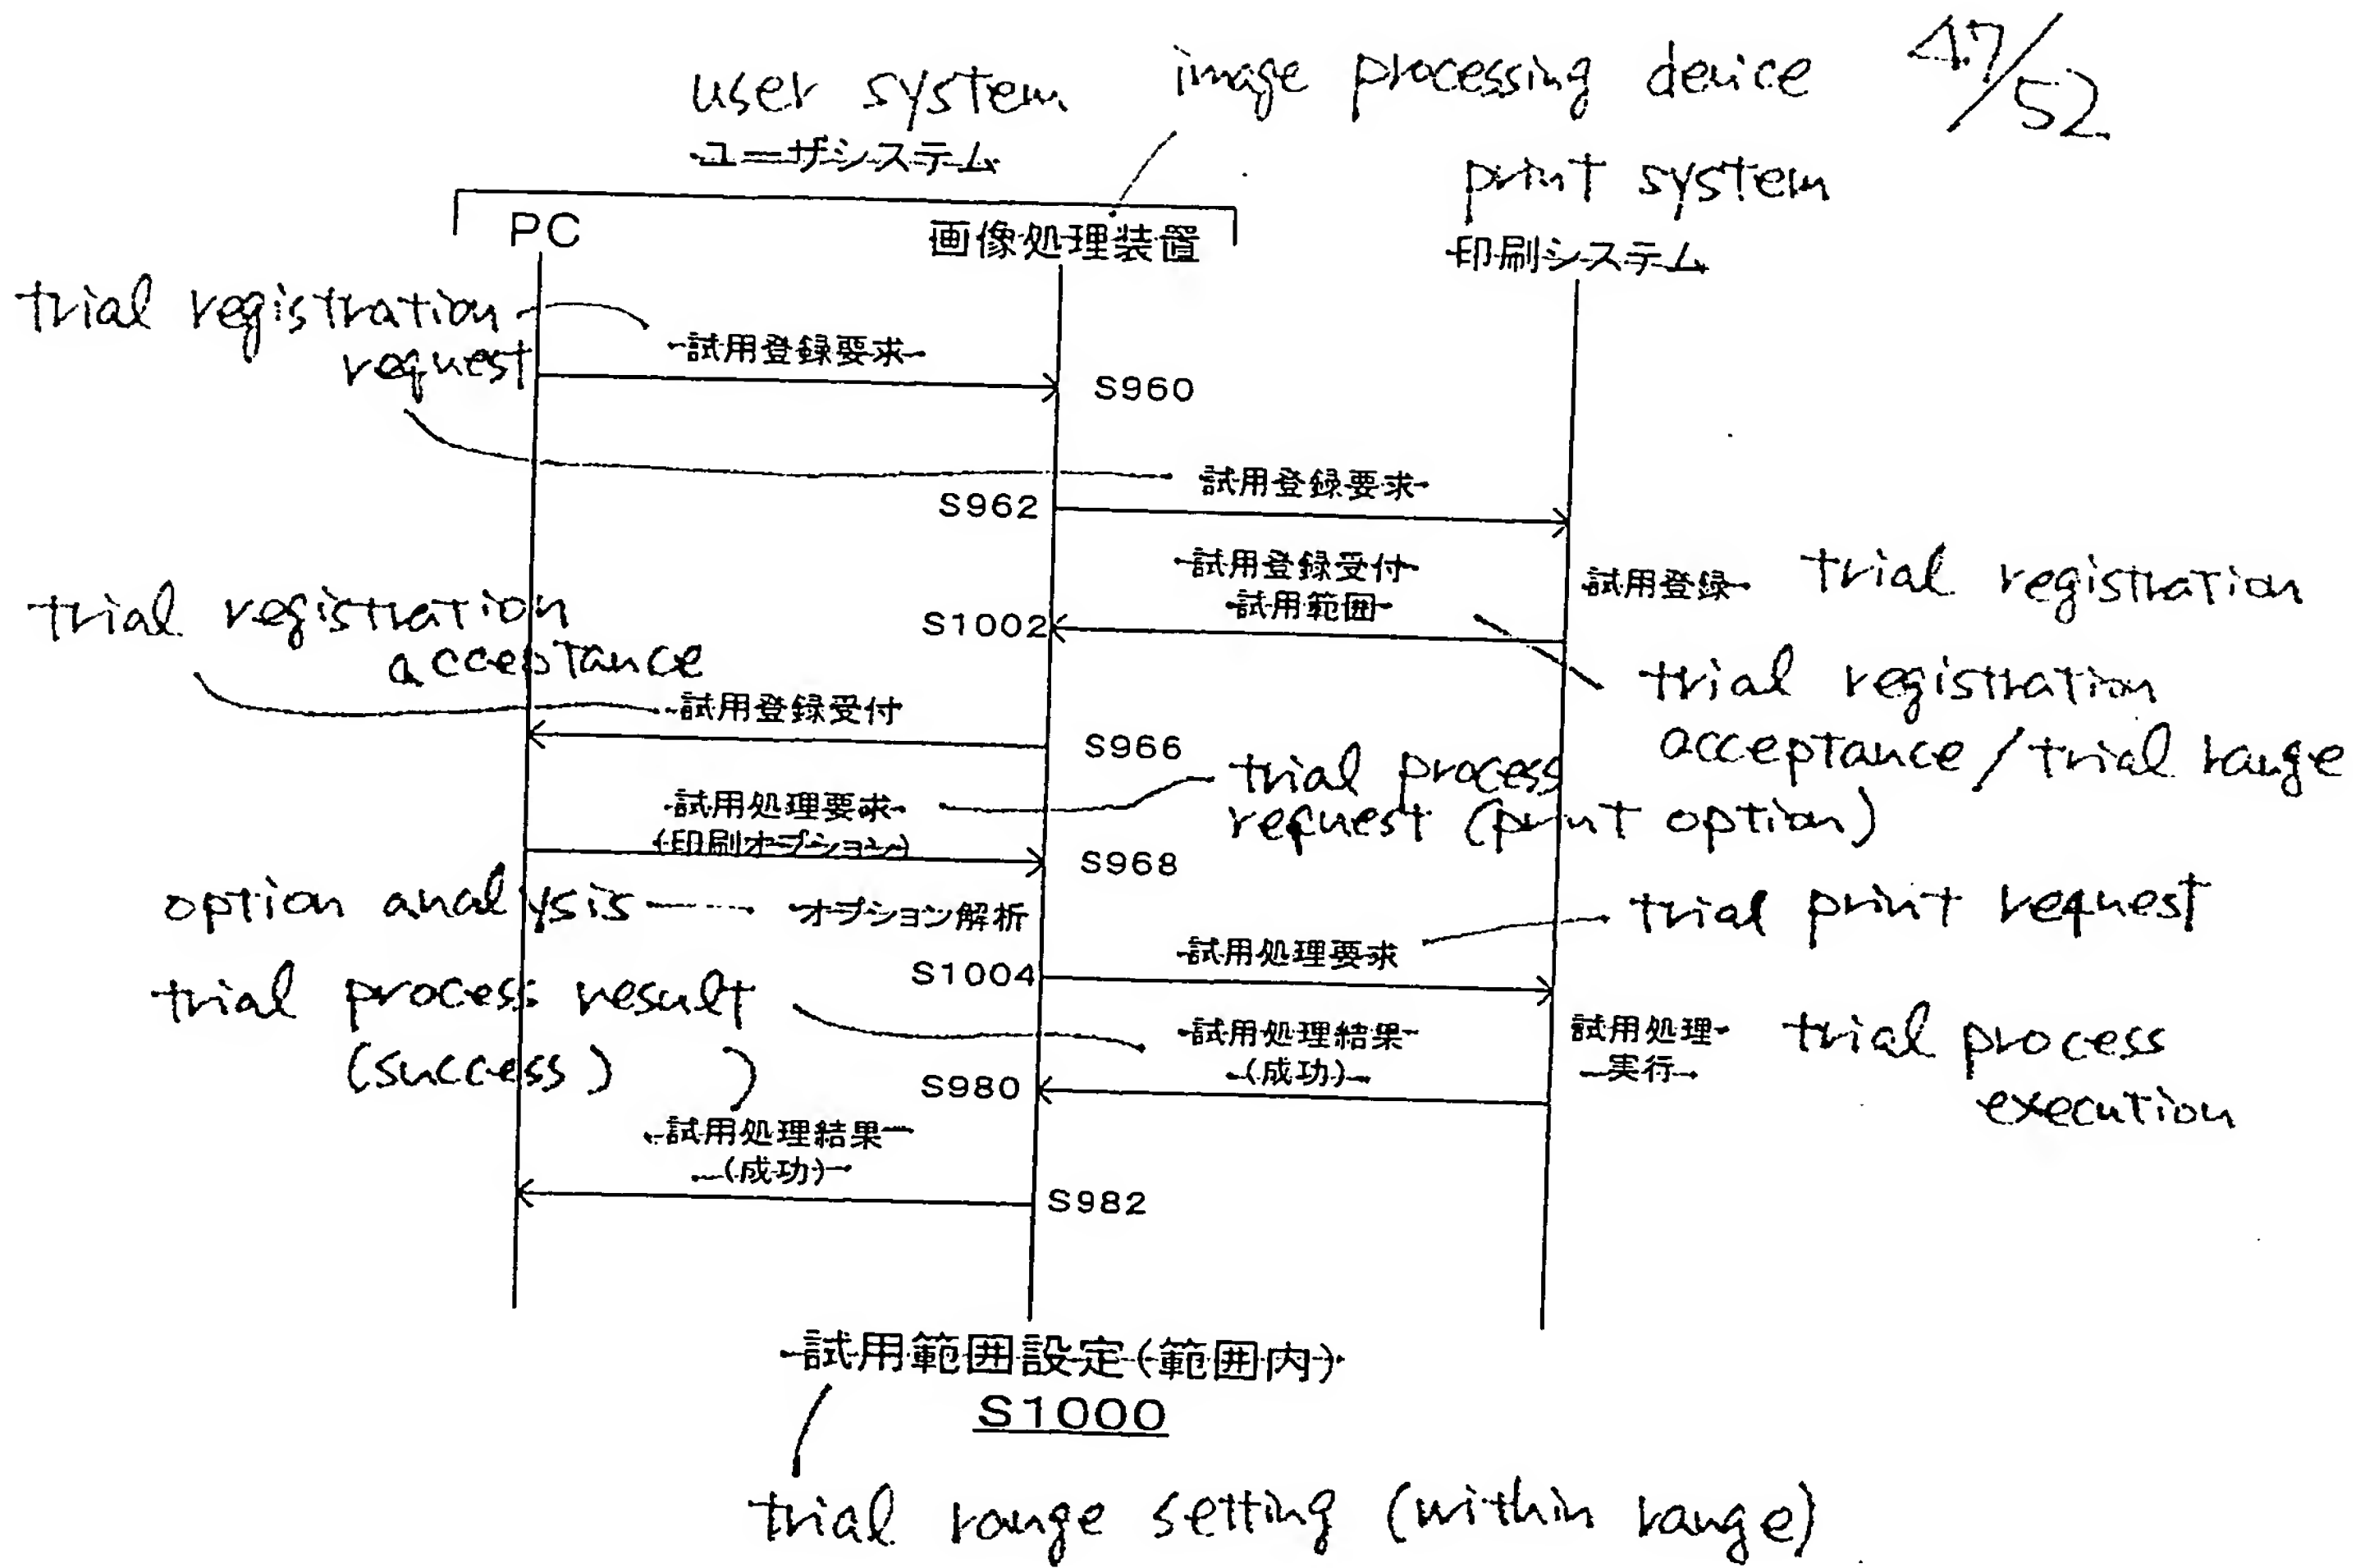 47/52
user system
image processing device
ユーザシステム
print system
PC
画像処理装置
印刷システム
trial registration
request
試用登録要求
S960
試用登録要求
S962
試用登録受付
試用範囲
試用登録
trial registration
S1002
trial registration
acceptance
trial registration
acceptance/trial range
試用登録受付
S966
trial process
request (print option)
試用処理要求
(印刷オプション)
S968
option analysis
オプション解析
trial print request
試用処理要求
S1004
trial process result
(success)
)
試用処理結果
(成功)
試用処理
実行
trial process
execution
S980
試用処理結果
(成功)
S982
試用範囲設定(範囲内)
S1000
trial range setting (within range)